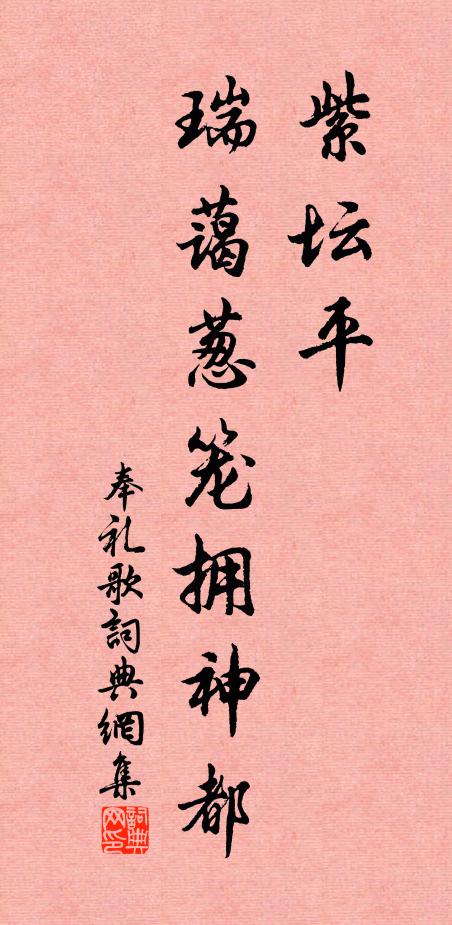 紫坛平
瑞蔼葱笼拥神都
奉礼歌詞典網集
詞典
网印